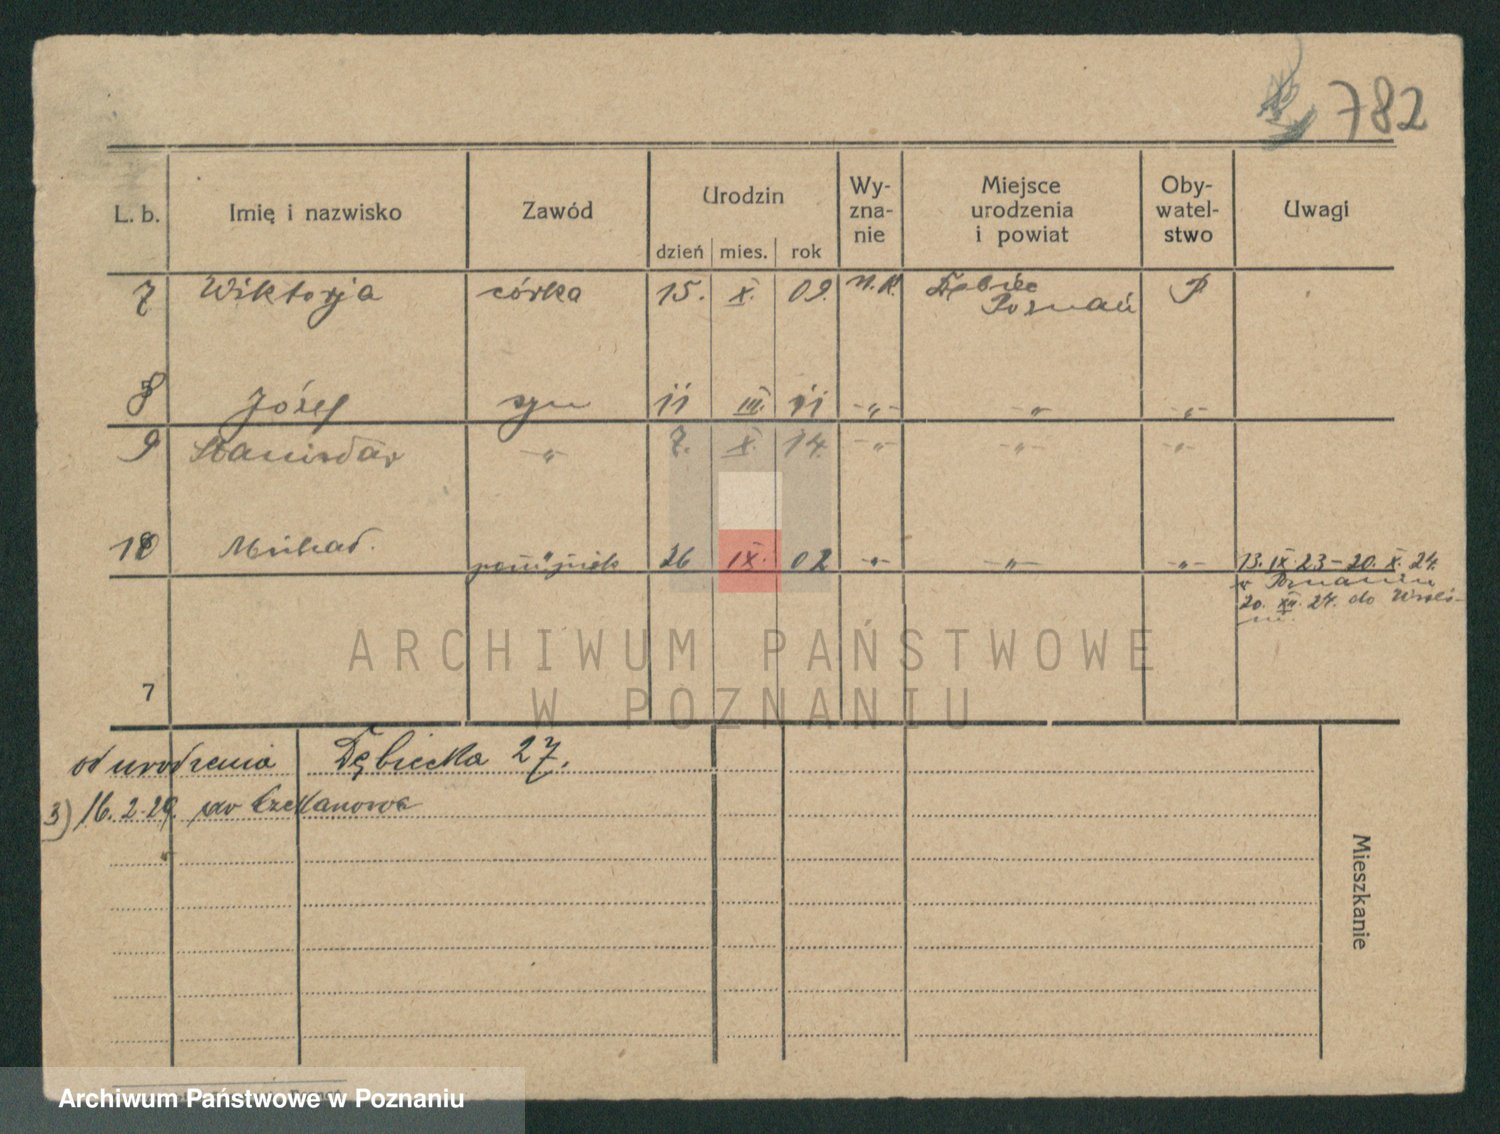 782
L. b. Imię i nazwisko Zawód Urodzin dzień mies. rok Wy-zna-nie Miejsce urodzenia i powiat Oby-watel-stwo Uwagi
7 Wiktorja córka 15. X. 09. Dębiec P
Poznań
8 Józef syn 11 III. 11 -„- -„- -„-
9 Stanisław -„- 7. X. 14. -„- -„- -„-
10 Michał. 26 IX. 02 -„- -„- -„- 13. IX 23 - 20. X. 24.
w Poznaniu
20. XII. 24. do
7
ARCHIWUM PAŃSTWOWE
W POZNANIU
od urodzenia Dębiecka 27.
3) 16. 2. 29. do Czekanowa
Mieszkanie
Archiwum Państwowe w Poznaniu